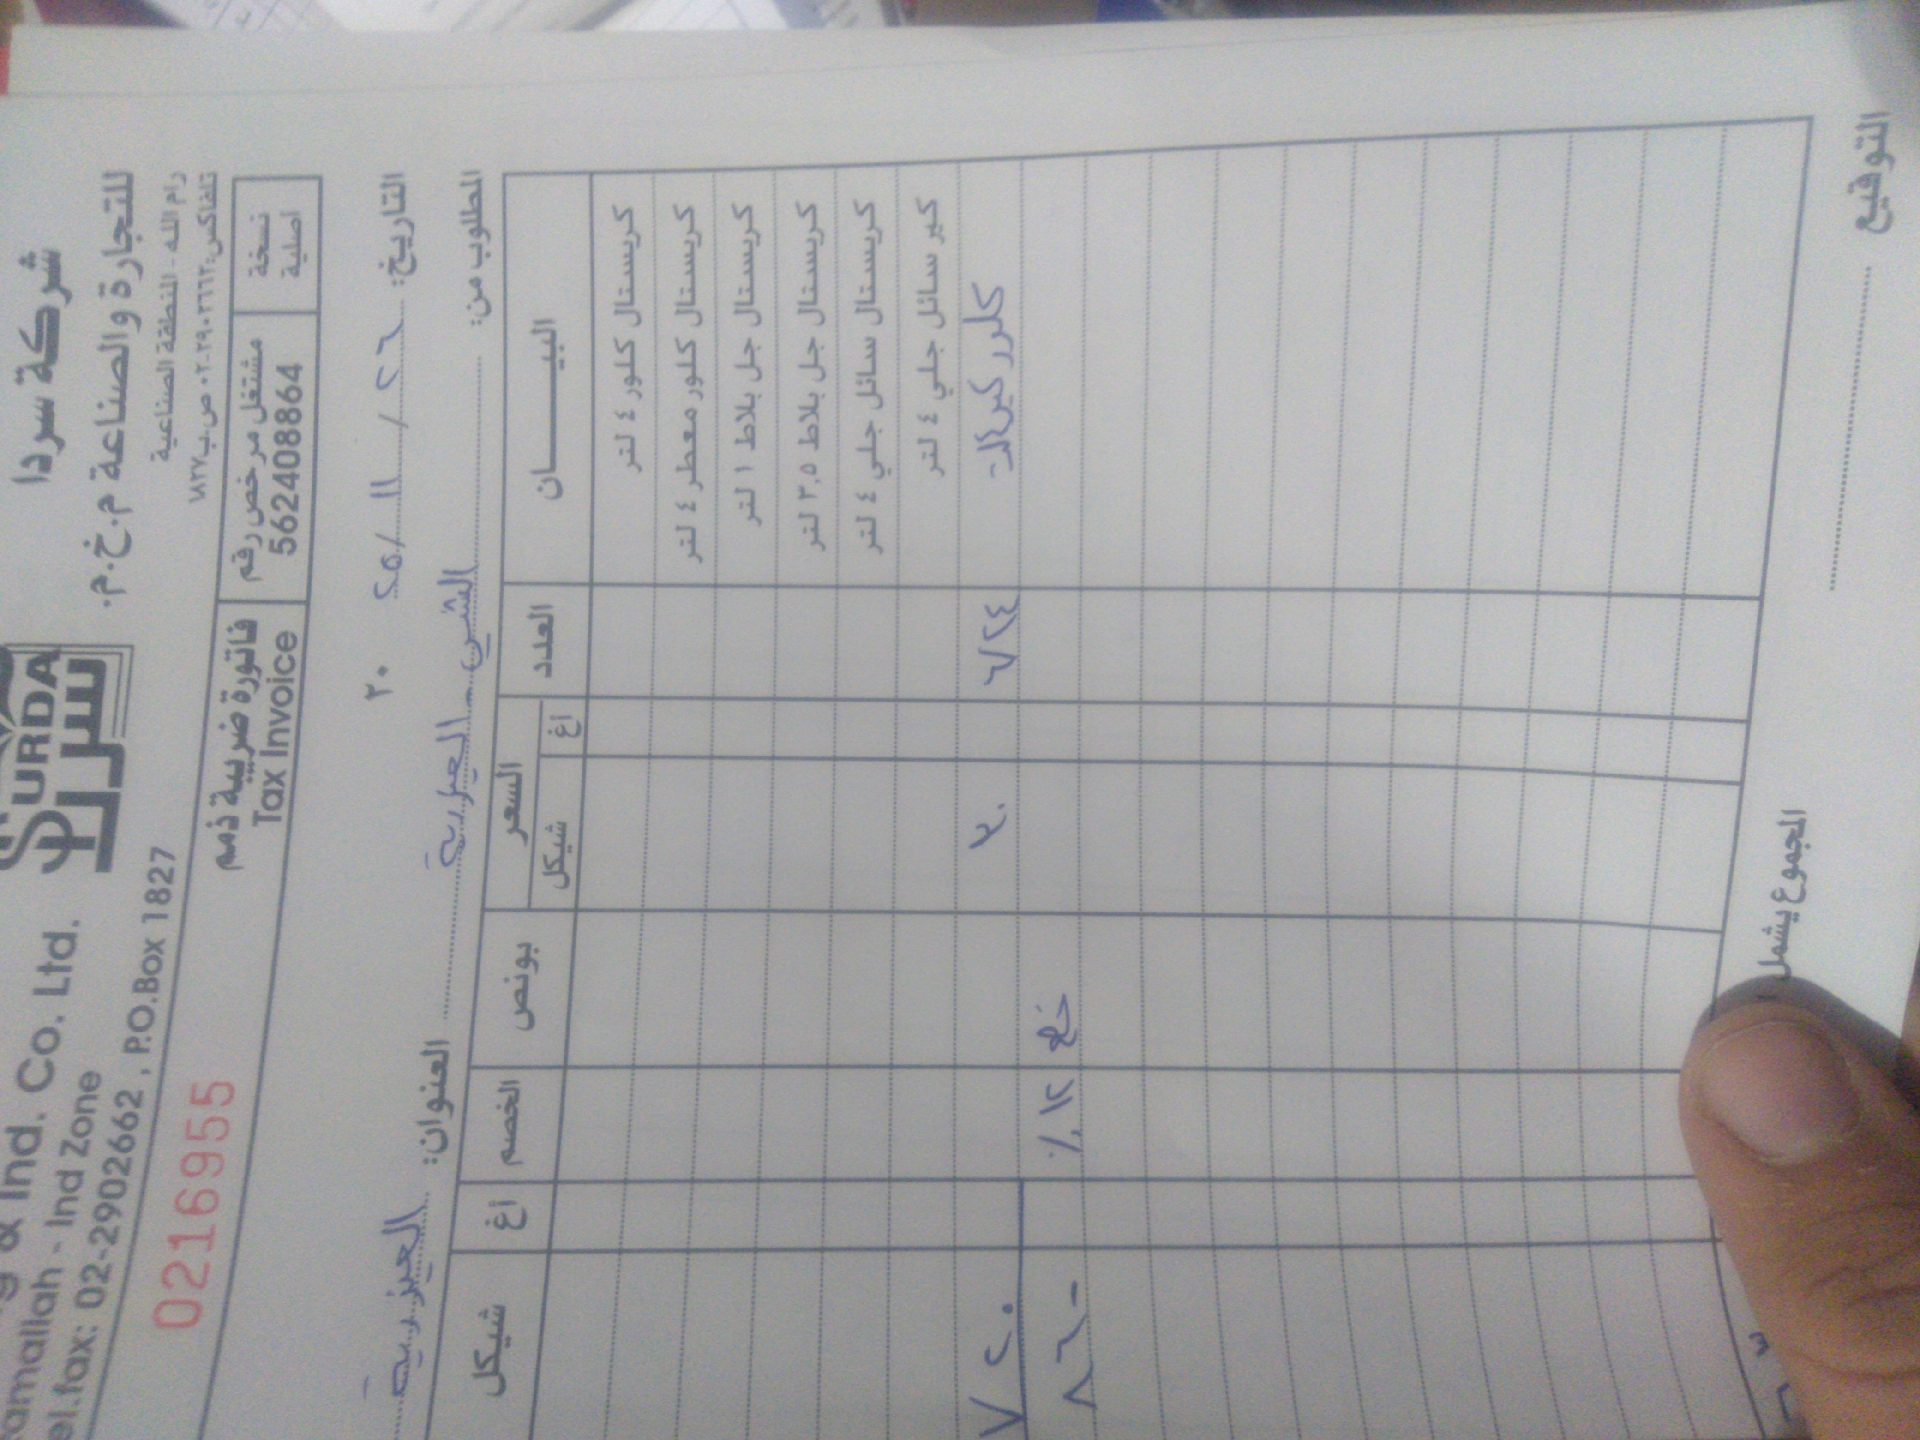 شركة سردا
للتجارة والصناعة م.خ.م.
رام الله - المنطقة الصناعية
تلفاكس: ٠٢-٢٩٠٢٦٦٢ ص.ب ١٨٢٧
SURDA
سردا
& Ind. Co. Ltd.
Ramallah - Ind Zone
Tel.fax: 02-2902662 , P.O.Box 1827
نسخة اصلية
مشتغل مرخص رقم
562408864
فاتورة ضريبية ذمم
Tax Invoice
0216955
التاريخ: ٢٦ / ١١ / ٢٥ ٢٠
المطلوب من: العيزرية
العنوان: العيزرية
البيــــــان العدد السعر بونص الخصم اغ شيكل
اغ شيكل
كريستال كلور ٤ لتر
كريستال كلور معطر ٤ لتر
كريستال جل بلاط ١ لتر
كريستال جل بلاط ٣,٥ لتر
كريستال سائل جلي ٤ لتر
كير سائل جلي ٤ لتر
كلور ٦/٢٤ ٣٠ ٧٢٠
خصم ١٢٪ ٨٦-
المجموع يشمل
التوقيع